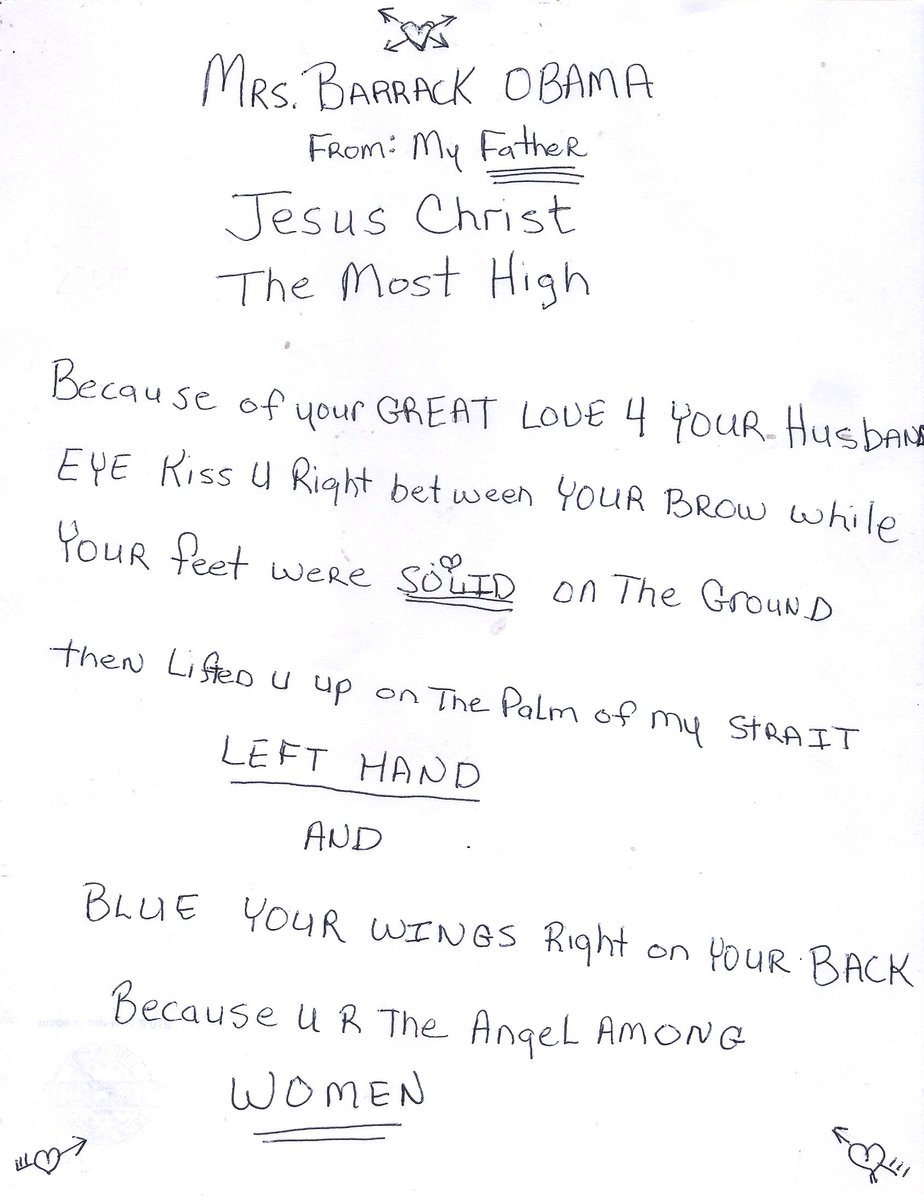 MRS. BARRACK OBAMA
FROM: My Father
Jesus Christ
The Most High
Because of your GREAT LOVE 4 YOUR HusbAND
EYE Kiss U Right between YOUR BROW while
YOUR feet were SOLID on The GrouND
then LifteD u up on The Palm of my STRAIT
LEFT HAND
AND
BLUE YOUR WINGS Right on YOUR BACK
Because U R The AngeL AMONG
WOMEN